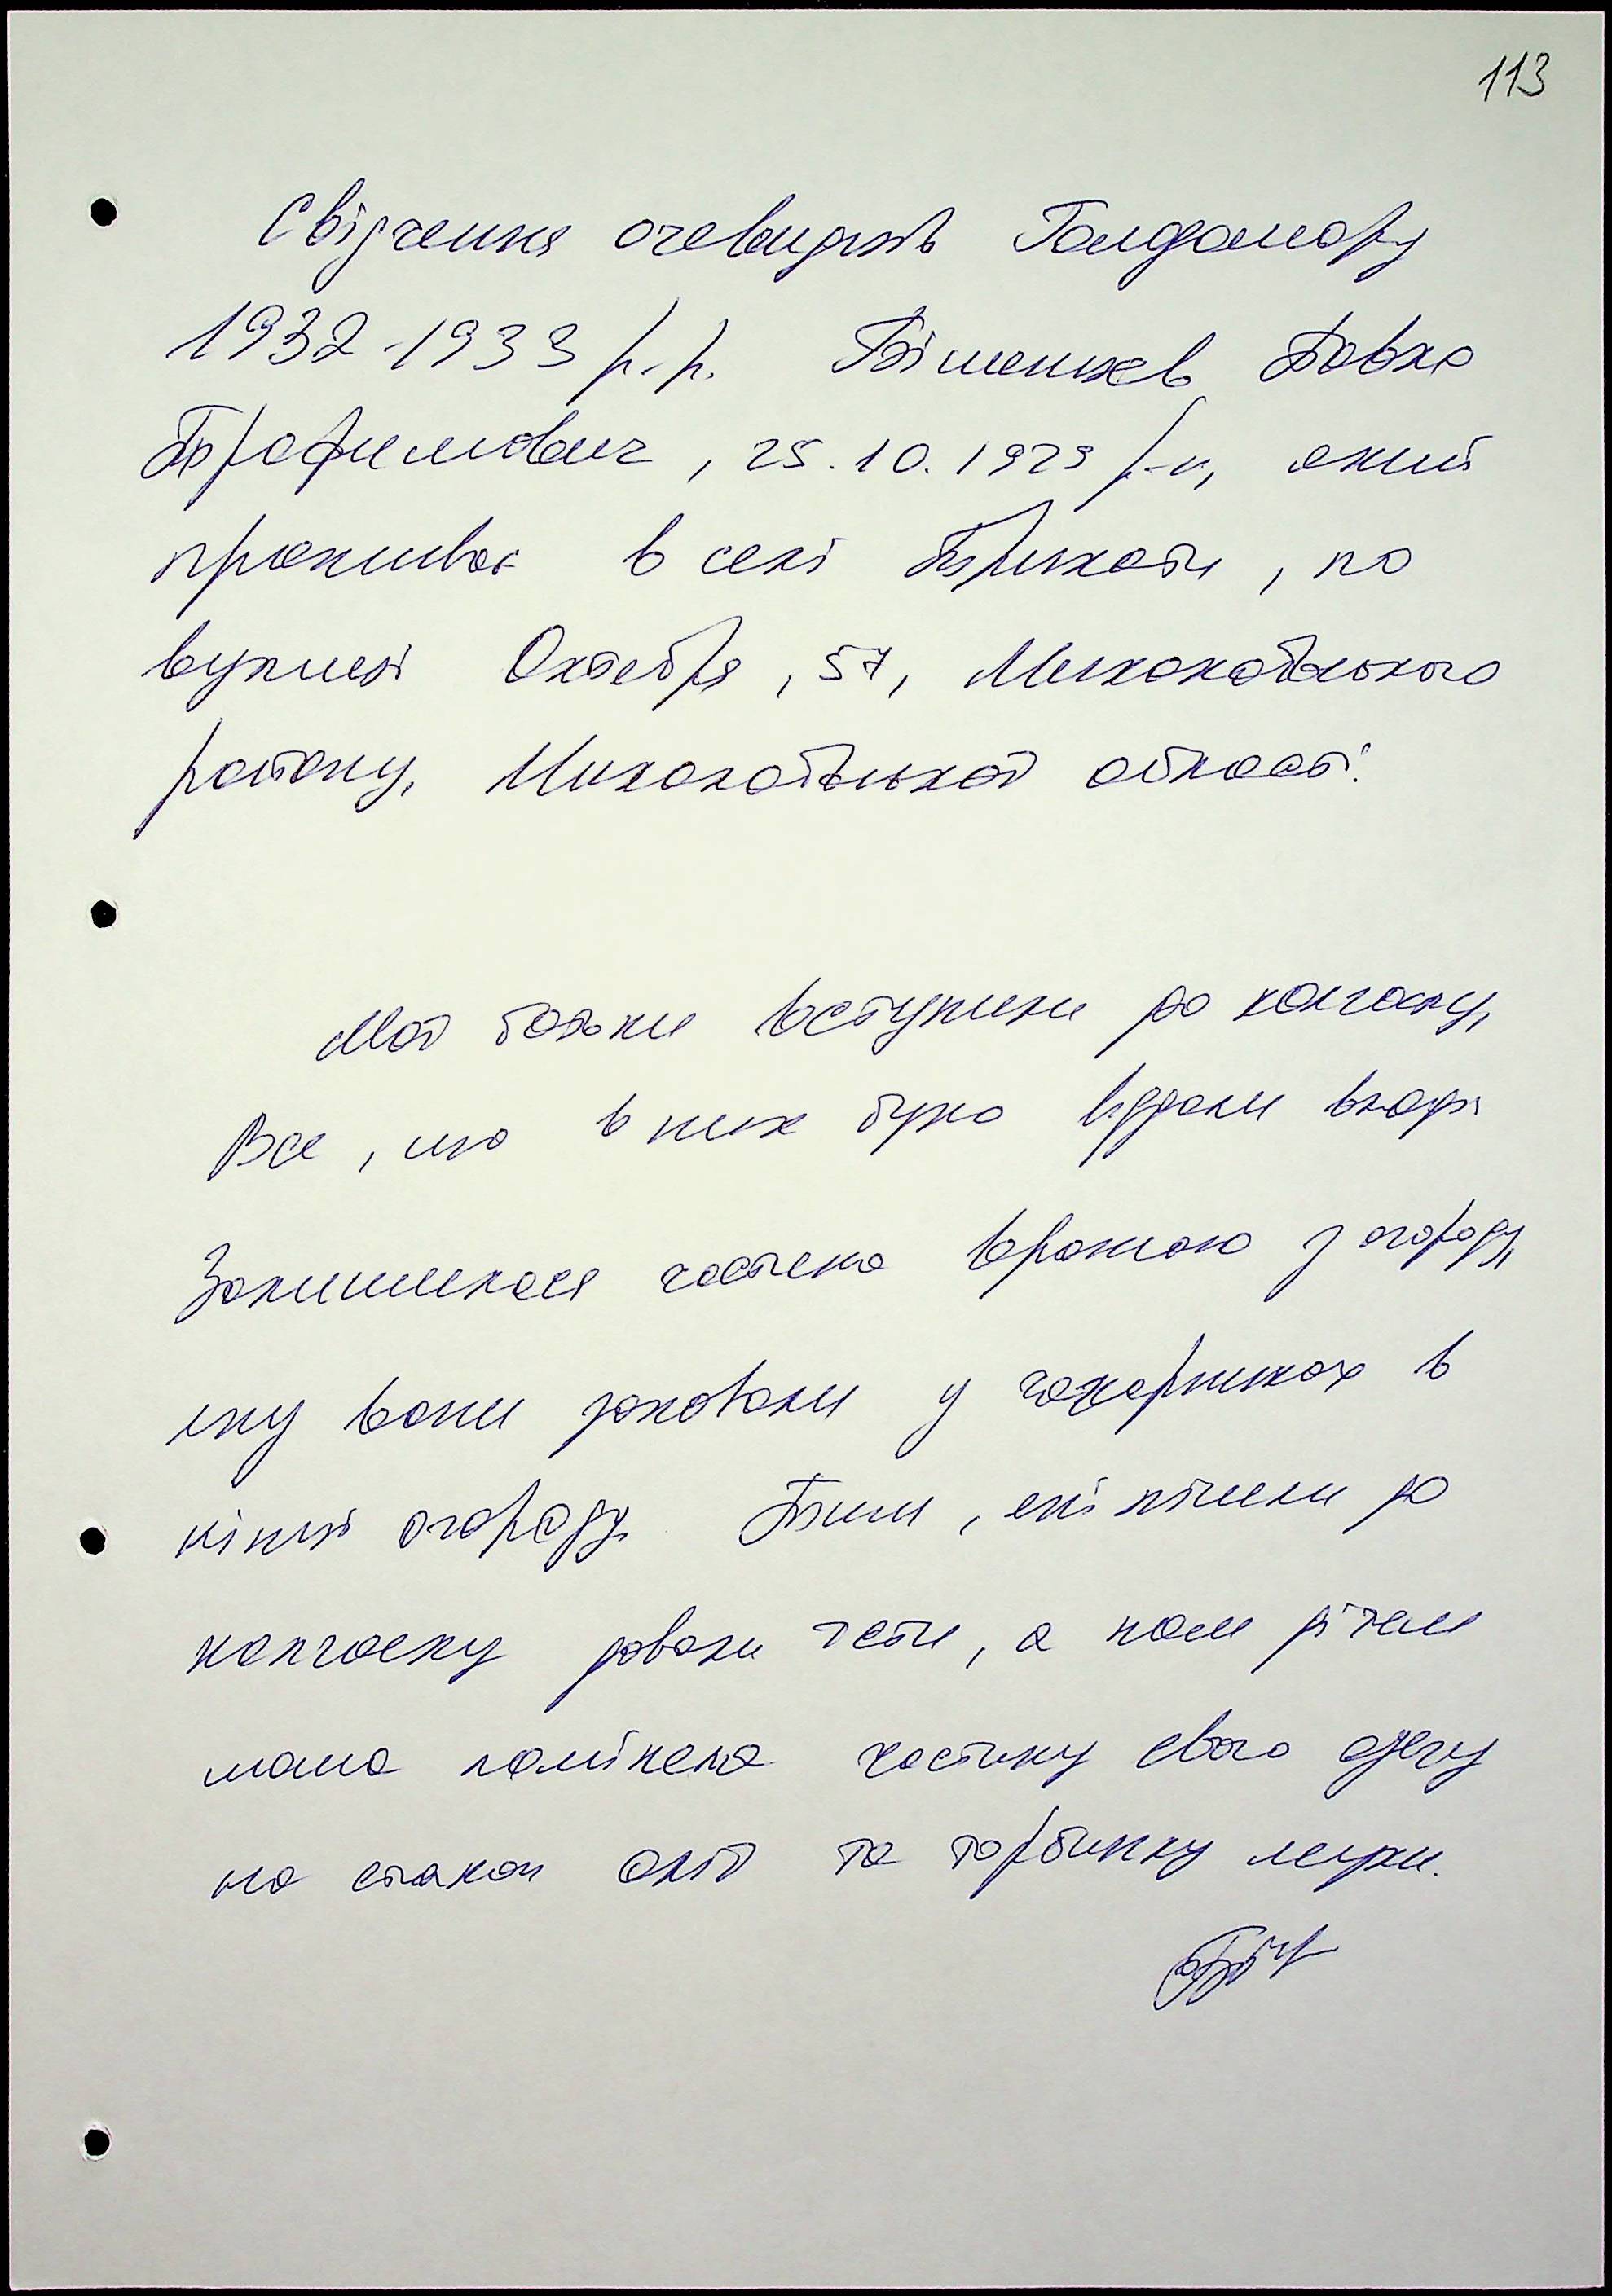 113
Свідчення очевидців Голодомору
1932-1933 р.р. Павла
Трофимович, 25.10.1929 р.н, який
проживає в селі Трихати, по
вулиці Октября, 57, Миколаївського
району, Миколаївської області.
Мої батьки вступили до колгоспу,
Все, що в них було віддали владі
Залишилася частина врожаю з огороду,
яку вони заховали у чагарниках в
кінці огороду. Тим, які пішли до
колгоспу давали їсти, а нам дітям
мама поміняла частину свого одягу
на стакан олії та торбинку муки.